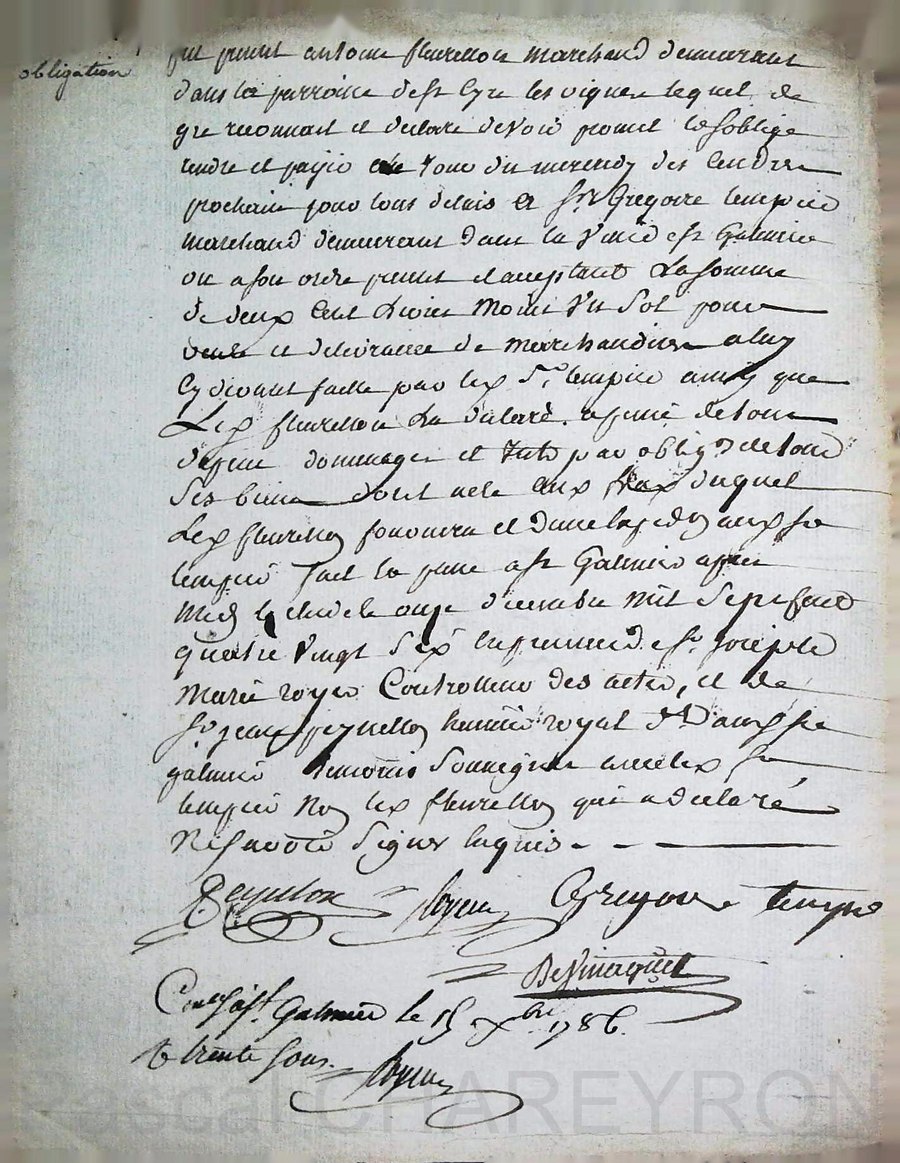 obligation
fut present antoine fleurellon marchand demeurant
dans la parroisse de st Cyre les vignes lequel de
gre reconnait et declare devoir promet et soblige
rendre et payer au jour du mercredy des Cendres
prochain pour tous delais a sr Gregoire tempier
marchand demeurant dans la ville de st Galmier
ou a son ordre present et acceptant La somme
de deux Cent Livres Moins Un Sol pour
vente et delivrance de marchandises a luy
Cy devant faitte par led Sr tempier ainsy que
Led fleurellon La declaré a peine de tous
depens dommages et par oblig on de tous
Ses biens dont acte aux frax duquel
Led fleurellon audt sr
tempier fait et passé a st Galmier apres
midy le onze decembre Mil Sept Cent
quatre Vingt Six En presence de sr Joseph
Marie royer Controlleur des actes, et de
sr jean peyrellon huissier royal dt audt st
galmier temoins Soussignes avec led sr
tempier Non led fleurellon qui a declaré
Ne Savoir Signer Enquis . - -
Peyrellon Royer Gregoire tempie
Conllé a st. Galmier le 15 Xbre 1786.
R trente Sous. Royer
Pascal CHAREYRON